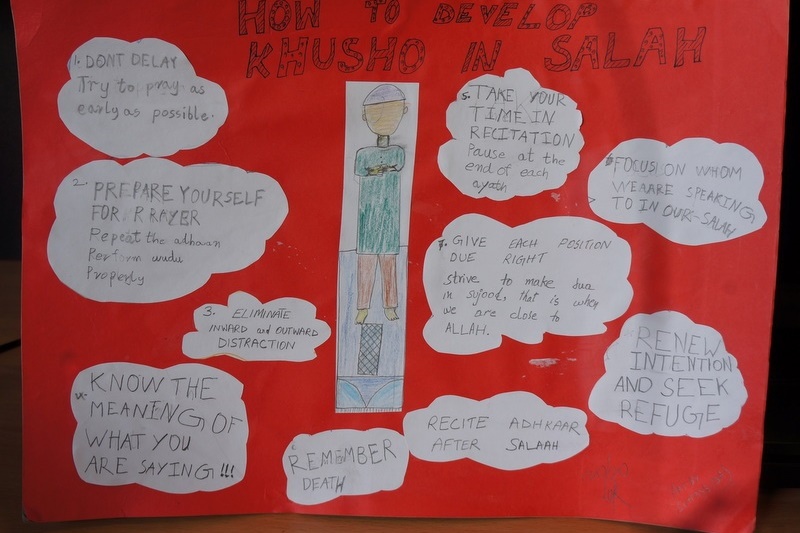 HOW TO DEVELOP
KHUSHO IN SALAH
1. DONT DELAY
Try to pray as
early as possible.
2. PREPARE YOURSELF
FOR PRAYER
Repeat the adhaan
Perform wudu
Properly
3. ELIMINATE
INWARD and OUTWARD
DISTRACTION
KNOW THE
MEANING OF
WHAT YOU
ARE SAYING!!!
5. TAKE YOUR
TIME IN
RECITATION
Pause at the
end of each
ayath
6 FOCUS ON WHOM
WE ARE SPEAKING
TO IN OUR SALAH
7. GIVE EACH POSITION
DUE RIGHT
strive to make dua
in sujood, that is when
we are close to
ALLAH.
RENEW
INTENTION
AND SEEK
REFUGE
REMEMBER
DEATH
RECITE ADHKAAR
AFTER SALAAH